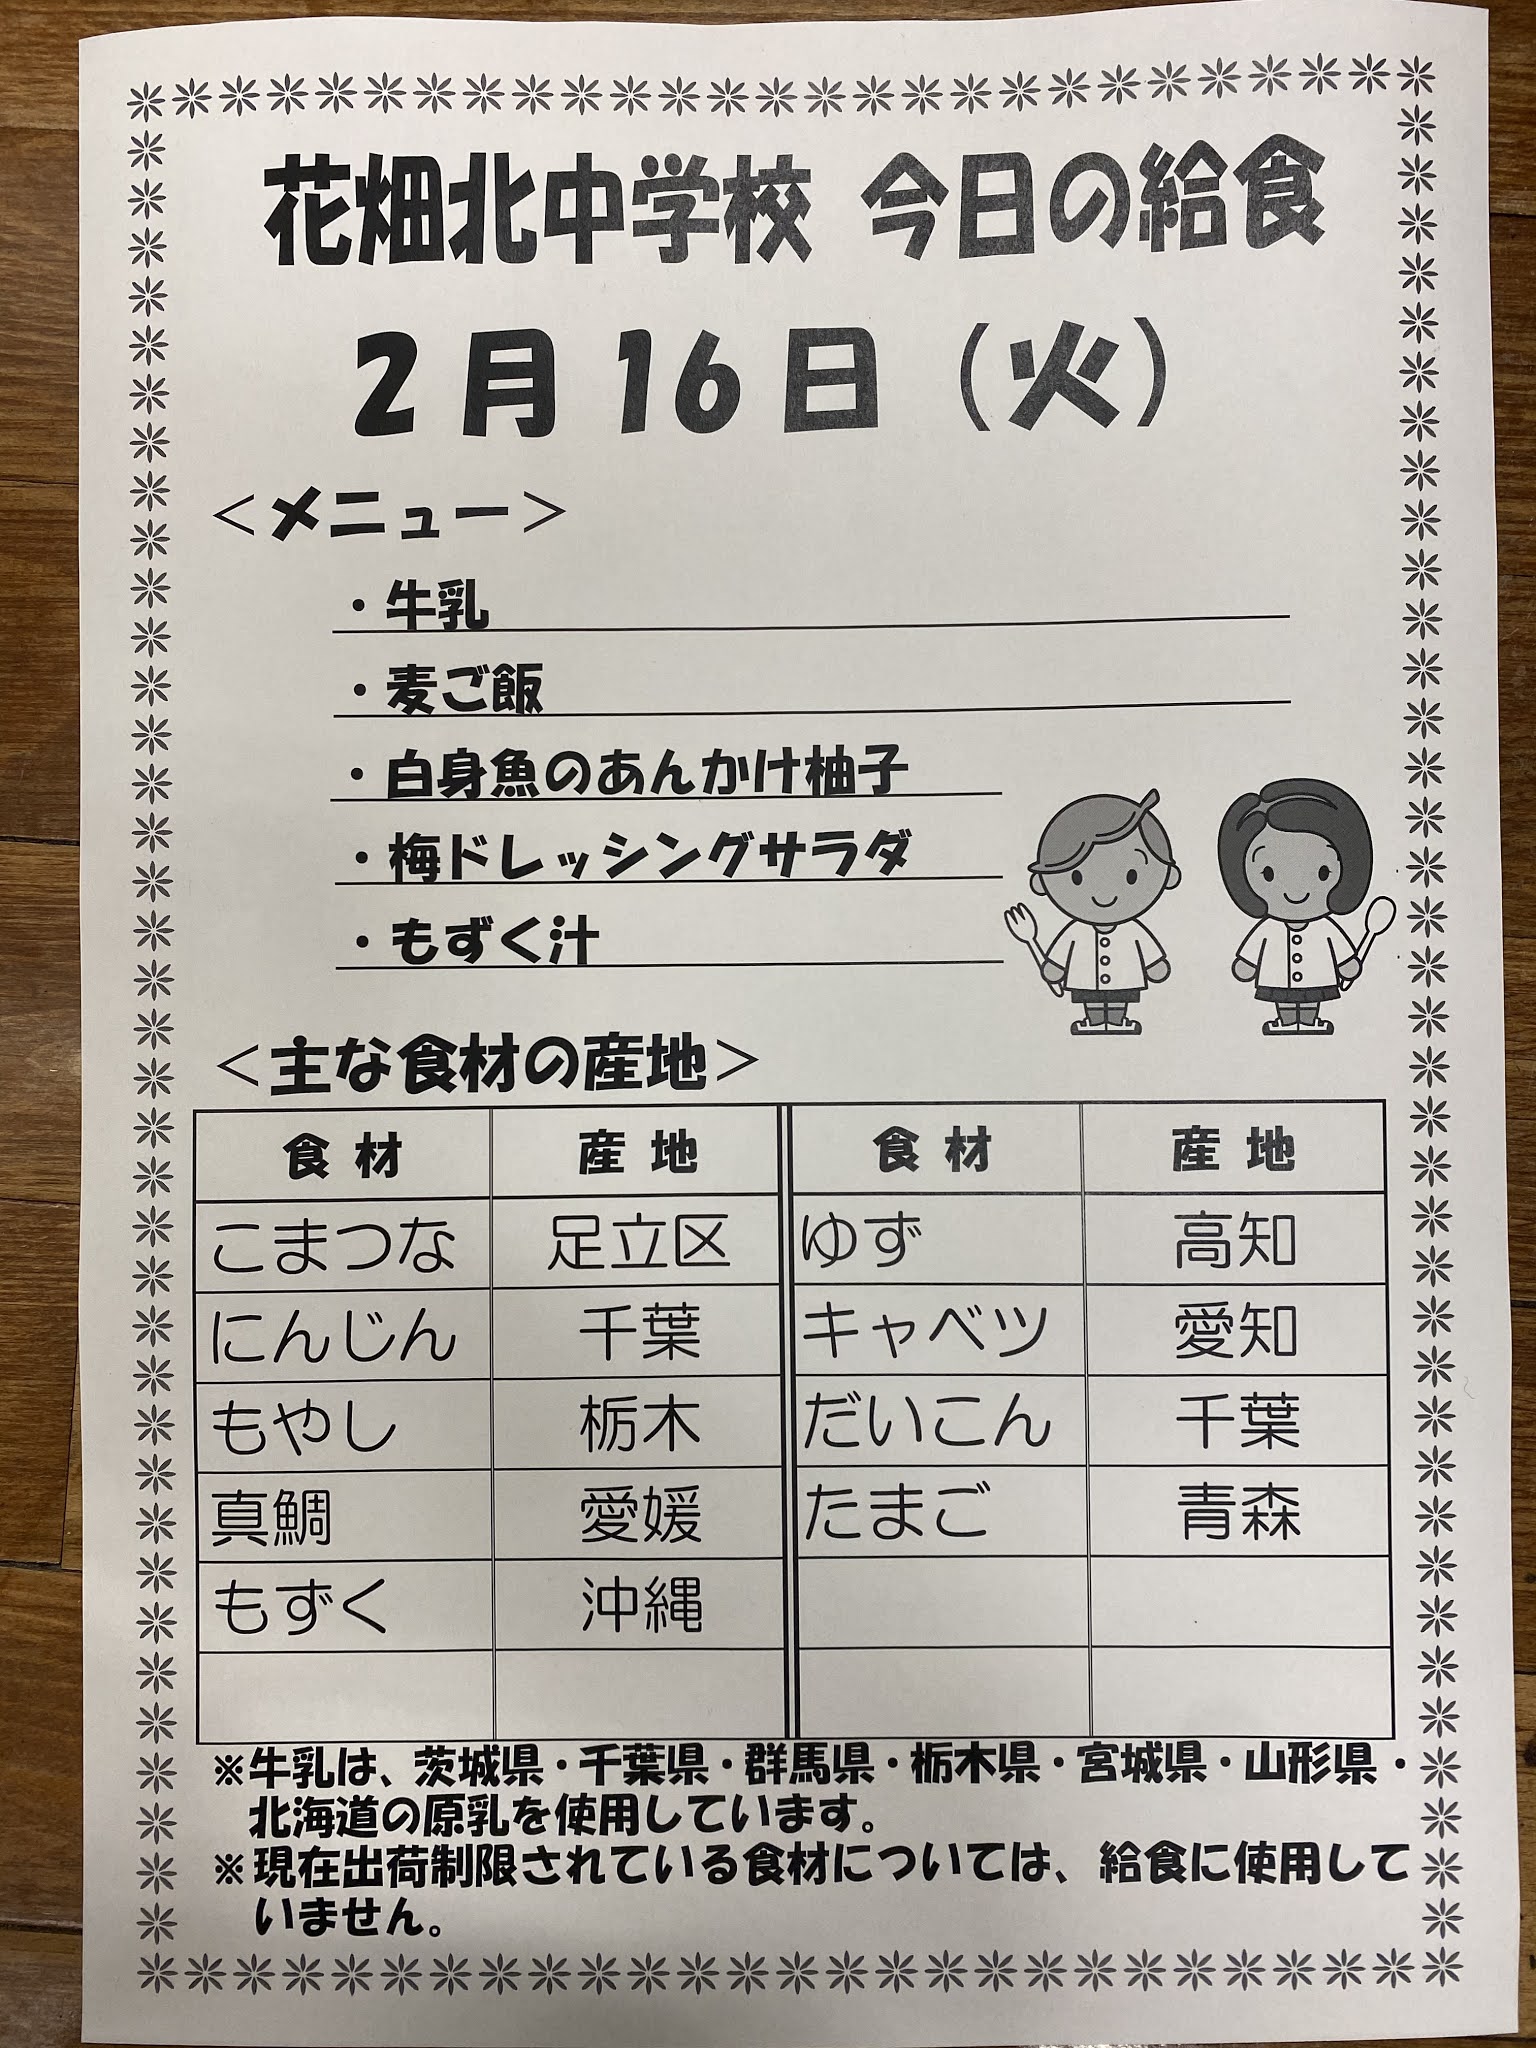 花畑北中学校 今日の給食
2月16日（火）
＜メニュー＞
・牛乳
・麦ご飯
・白身魚のあんかけ柚子
・梅ドレッシングサラダ
・もずく汁
＜主な食材の産地＞
食材 産地 食材 産地
こまつな 足立区 ゆず 高知
にんじん 千葉 キャベツ 愛知
もやし 栃木 だいこん 千葉
真鯛 愛媛 たまご 青森
もずく 沖縄
※牛乳は、茨城県・千葉県・群馬県・栃木県・宮城県・山形県・
北海道の原乳を使用しています。
※現在出荷制限されている食材については、給食に使用して
いません。